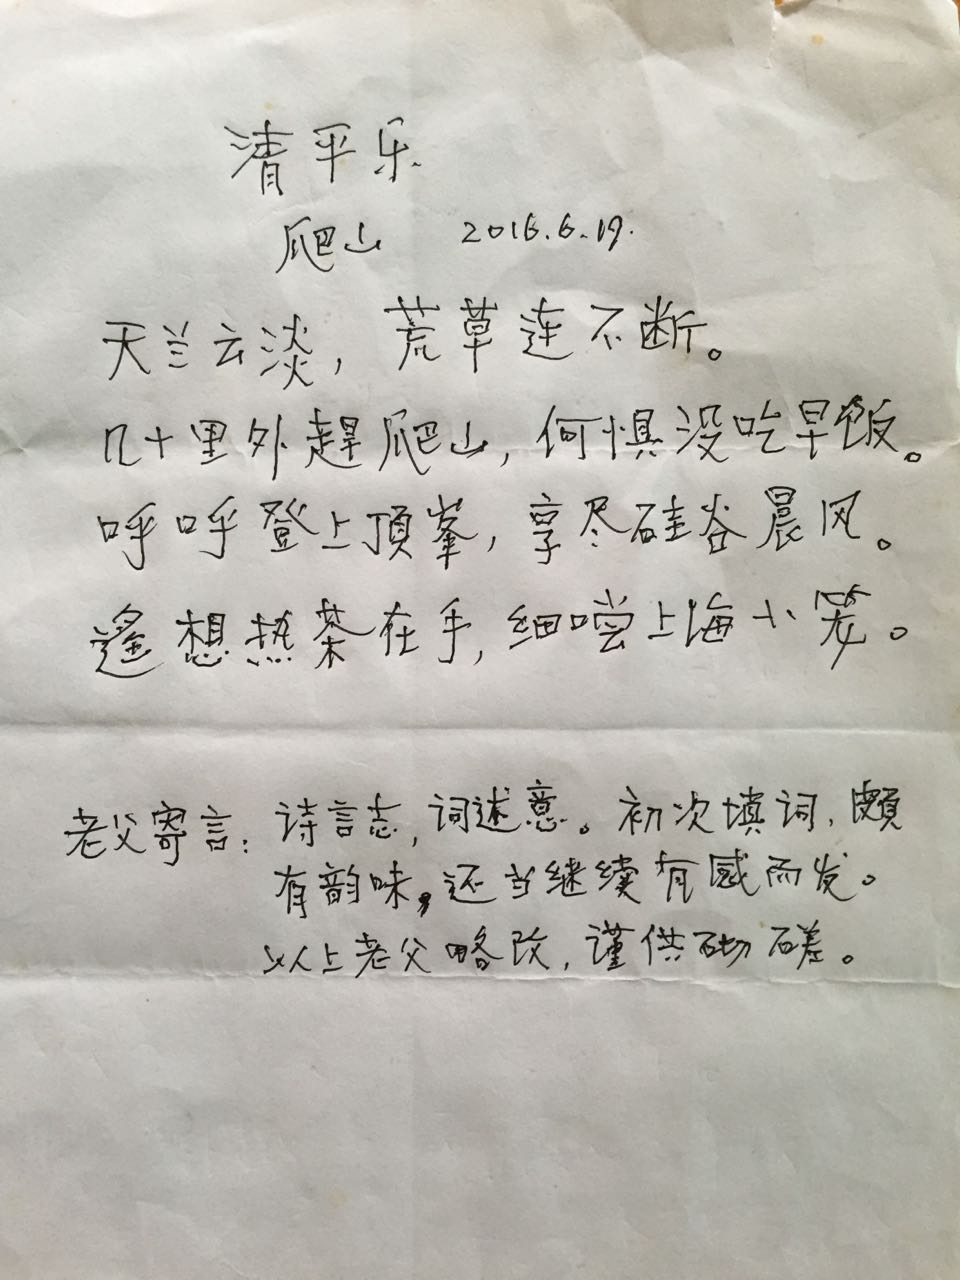 清平乐
爬山 2016.6.19.
天兰云淡，荒草连不断。
几十里外趕爬山，何惧没吃早饭。
呼呼登上顶峯，享尽硅谷晨风。
遥想热茶在手，细嚐上海小笼。
老父寄言：诗言志，词述意。初次填词，颇
有韵味，还当继续有感而发。
以上老父略改，谨供切磋。